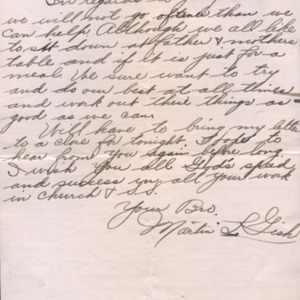 In regards
we will not go oftener than we
can help. Although we all like
to sit down at father & mothers
table and if it is just for a
meal. We sure want to try
and do our best at all times
and work out these things as
good as we can.
Will have to bring my letter
to a close for tonight. Hope to
hear from you again before long
I wish you all God's speed
and success in all your work
in church & S.S.
Your Bro.
Martin L Gish